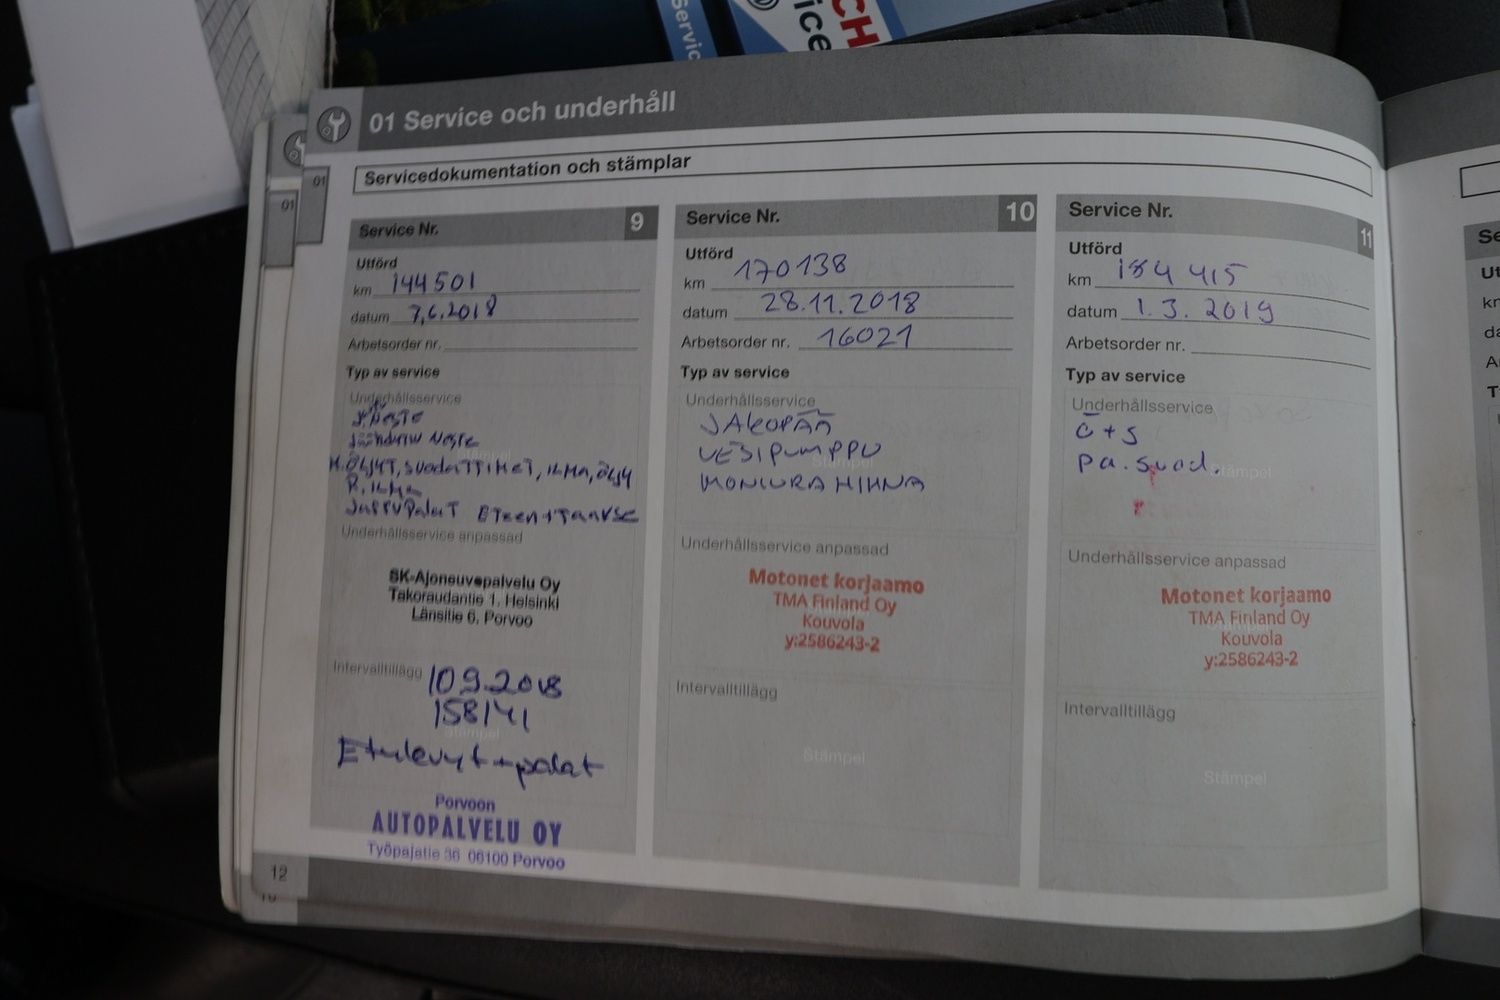 Servic
CH
ice
01 Service och underhåll
01
01
Servicedokumentation och stämplar
Service Nr. 9
Utförd
km 144501
datum 7.6.2018
Arbetsorder nr.
Typ av service
Underhållsservice
J.Neste
Jäähdytin Neste
M.ÖLJYT, SUODATTIMET, ILMA, ÖLJY
R.ILMA
JARRUPALAT ETEEN+TAAKSE
Underhållsservice anpassad
SK-Ajoneuvopalvelu Oy
Takoraudantie 1, Helsinki
Länsitie 6, Porvoo
Intervalltillägg
10.9.2018
158141
Stämpel
Etulevyt + palat
Porvoon
AUTOPALVELU OY
Työpajatie 36 06100 Porvoo
12
Service Nr. 10
Utförd
km 170138
datum 28.11.2018
Arbetsorder nr. 16021
Typ av service
Underhållsservice
JAKOPÄÄ
VESIPUMPPU
Stämpel
MONIURAHIHNA
Underhållsservice anpassad
Motonet korjaamo
TMA Finland Oy
Kouvola
y:2586243-2
Intervalltillägg
Stämpel
Service Nr. 11
Utförd
km 184 415
datum 1.3.2019
Arbetsorder nr.
Typ av service
Underhållsservice
Ö+S
pa.suod.
Stämpel
Underhållsservice anpassad
Motonet korjaamo
TMA Finland Oy
Kouvola
y:2586243-2
Intervalltillägg
Stämpel
Se
Ut
km
da
A
T